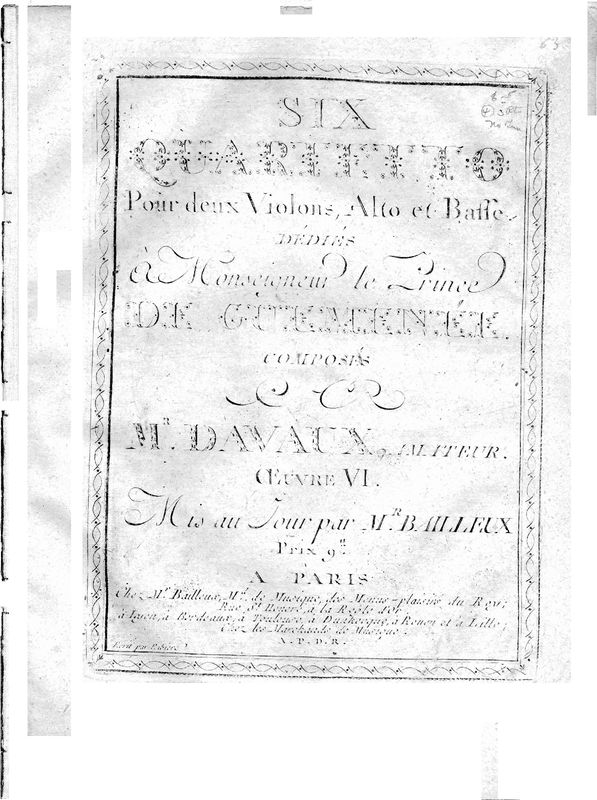 63
SIX
QUARTETTO
Pour deux Violons, Alto et Basse
DÉDIÉS
à Monseigneur le Prince
DE GUEMENÉE.
COMPOSÉS
Mr. DAVAUX, AMATEUR.
ŒUVRE VI.
Mis au Jour par MR. BAILLEUX
Prix 9tt
A PARIS
Chez Mr. Bailleux, Md. de Musique, des Menus-plaisirs du Roy;
Rue St. Honoré, à la Regle d'or.
à Lion, à Bordeaux, à Toulouse, à Dunkerque, à Rouen et à Lille;
Chez les Marchands de Musique.
A. P. D. R.
Ecrit par Ribiere